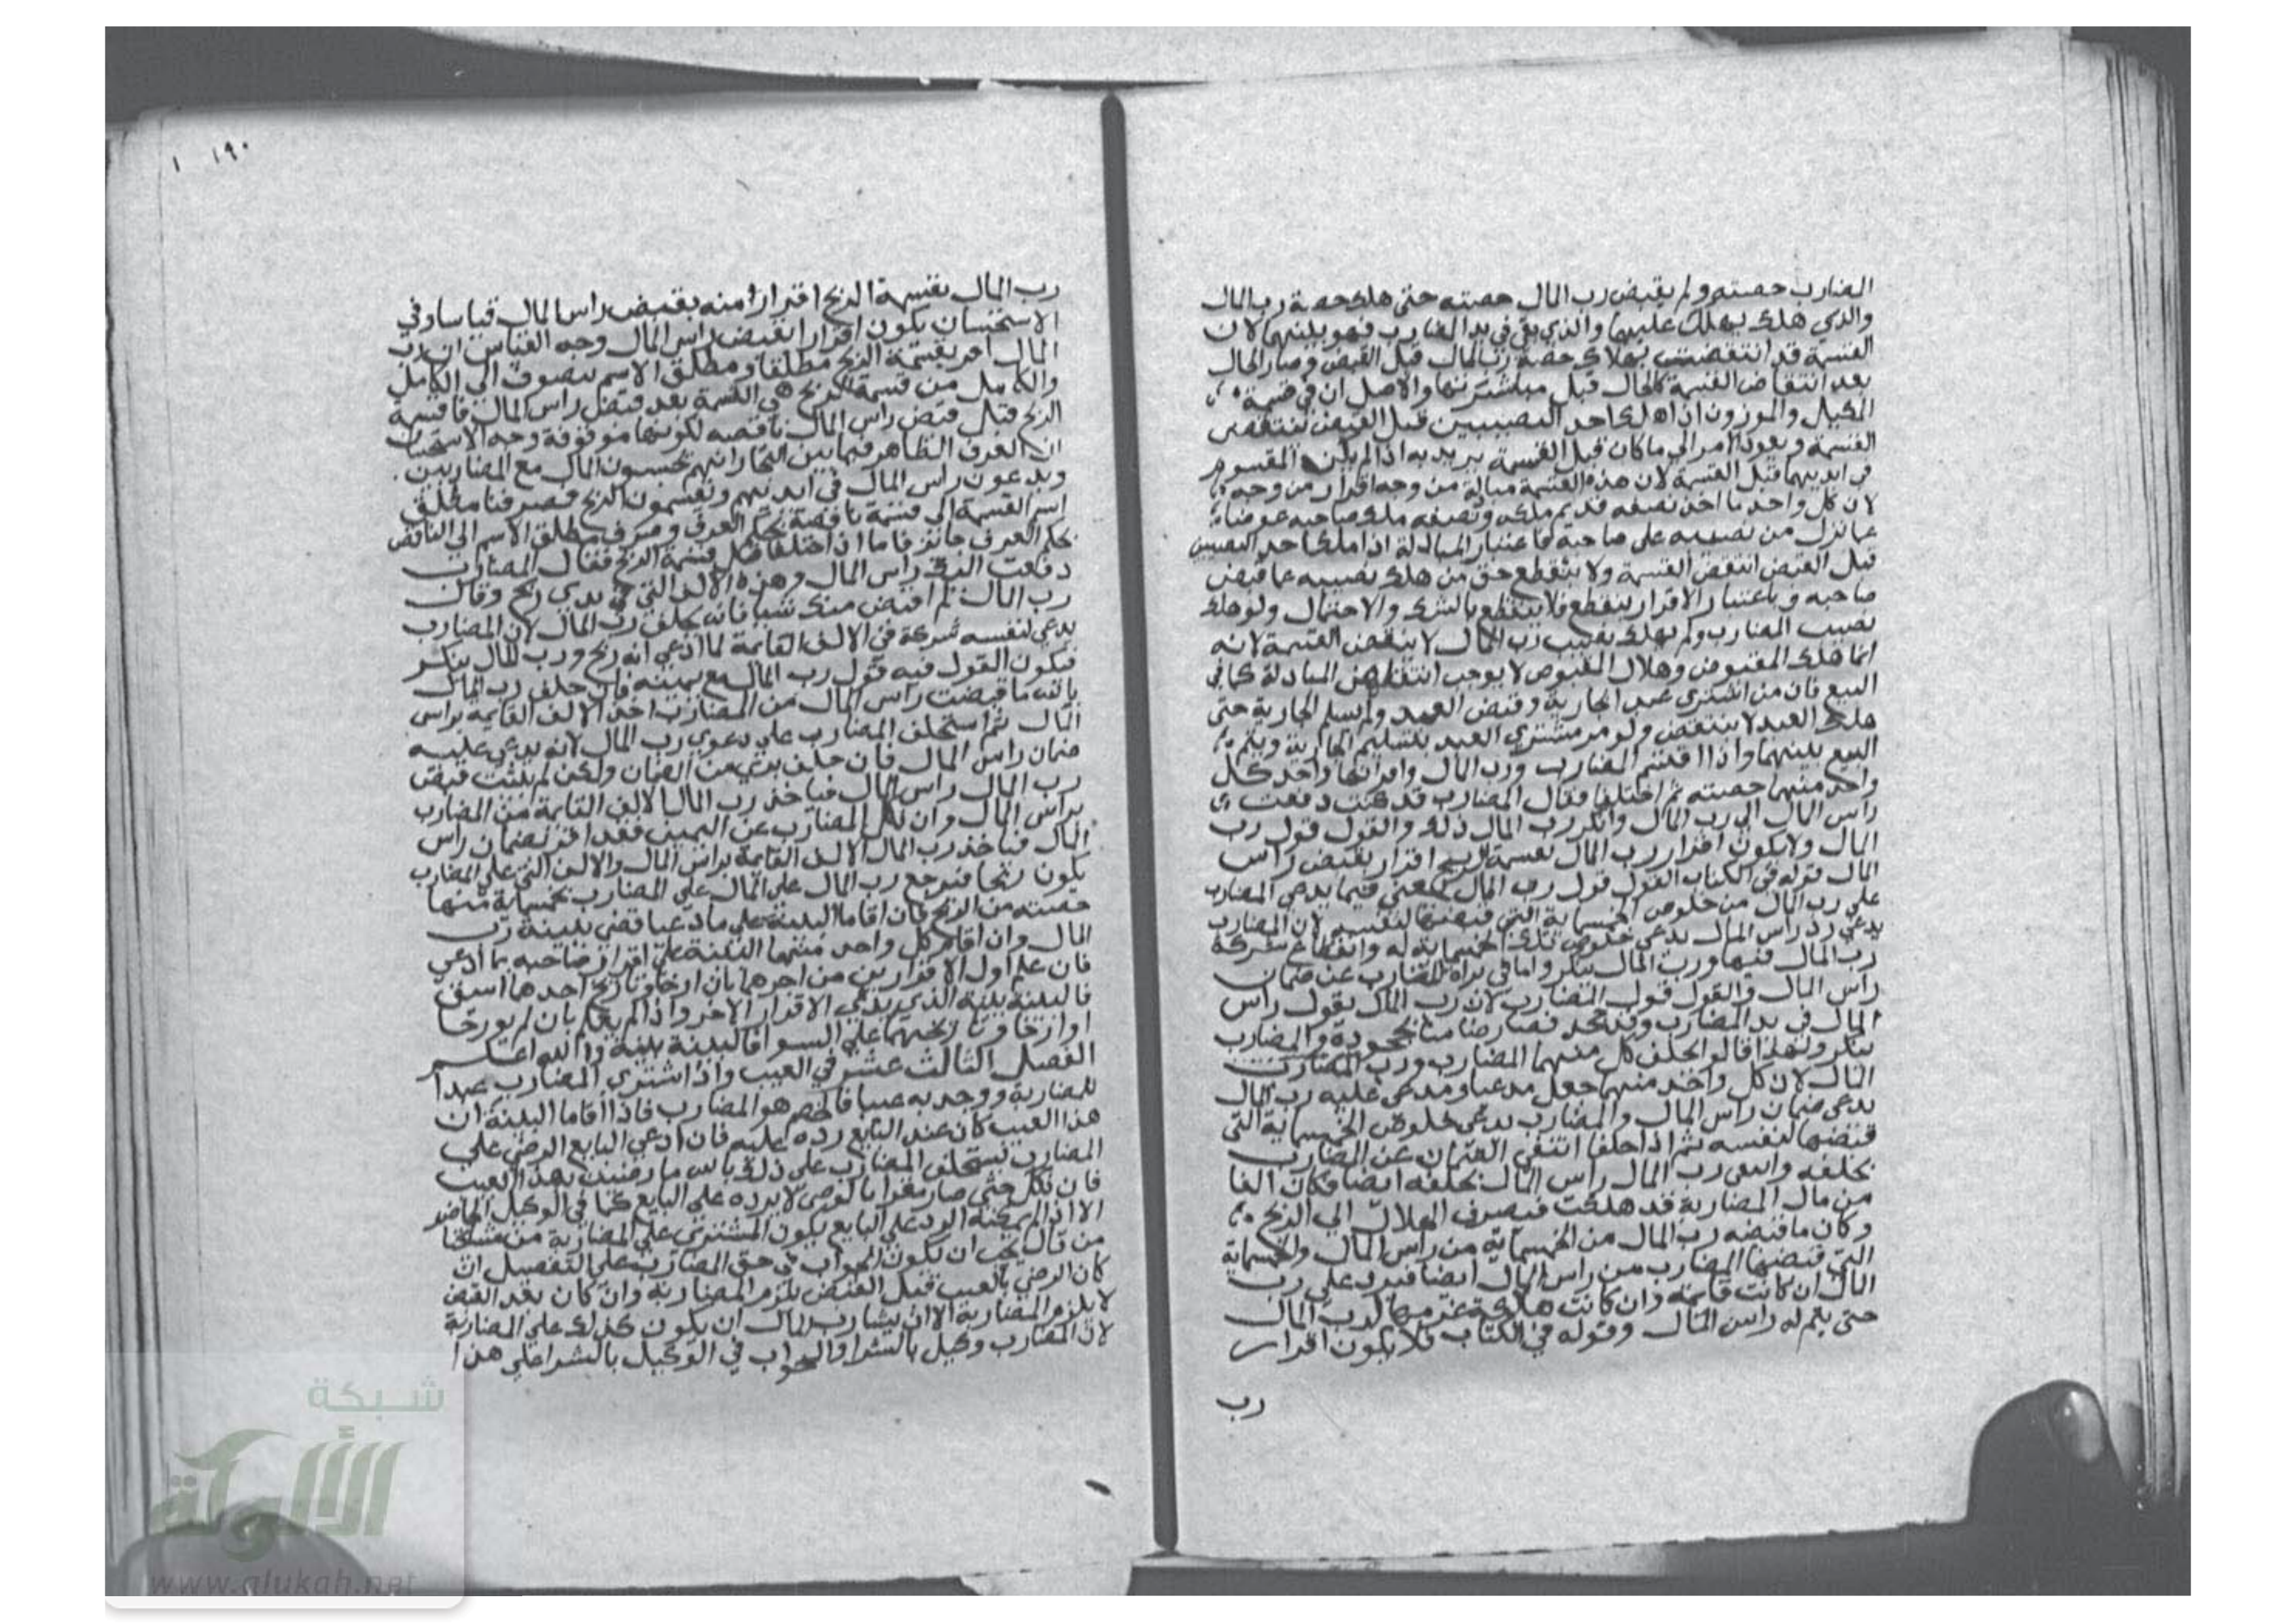 المضارب حصته ولم يقبض رب المال حصته حتى هلك حصة رب المال
والذي هلك يهلك عليهما والذي بقي في يد المضارب فهو بينهما لان
القسمة قد انتقضت بهلاك حصة رب المال قبل القبض وصار الحال
بعد انتقاض القسمة كالحال قبل مباشرتها والاصل ان في قسمة
المكيل والموزون اذا هلك احد النصيبين قبل القبض تنتقض
القسمة ويعود الامر الى ما كان قبل القسمة يريد به اذا لم يكن المقسوم
في ايديهما قبل القسمة لان هذه القسمة مبادلة من وجه اقرار من وجه
لان كل واحد ما اخذ نصفه قديم ملكه ونصفه ملك صاحبه عوضا
عما ترك من نصيبه على صاحبه فاعتبار المبادلة اذا هلك احد النصيبين
قبل القبض انتقض القسمة ولا ينقطع حق من هلك نصيبه عما قبض
صاحبه وباعتبار الاقرار ينقطع فلا ينقطع بالشك والاحتمال ولو هلك
نصيب المضارب ولم يهلك نصيب رب المال لا ينتقض القسمة لانه
انما هلك المقبوض وهلاك المقبوض لا يوجب انتقاض المبادلة كما في
البيع فان من اشترى عبد الجارية وقبض العبد ولم يسلم الجارية حتى
هلك العبد لا ينتقض ولو مر مشتري العبد بتسليم الجارية ويتم
البيع بينهما واذا اقتسم المضارب ورب المال وافرازها واخذ كل
واحد منهما حصته ثم اختلفا فقال المضارب قد كنت دفعت
راس المال الى رب المال وانكر رب المال ذلك والقول قول رب
المال ولا يكون اقرار رب المال بقسمة الربح اقرار بقبض راس
المال قوله في الكتاب القول قول رب المال يعني فيما يدعي المضارب
على رب المال من خلوص الخمسماية التي قبضها لنفسه لان المضارب
يدعي رد راس المال يدعي خلوص تلك الخمسماية له وانقطاع شركة
رب المال فيها ورب المال ينكر واما في براة المضارب عن ضمان
راس المال فالقول قول المضارب لان رب المال يقول راس
المال في يد المضارب وقد جحد فصار ضامنا بجحوده والمضارب
ينكر ولهذا قالوا يحلف كل منهما المضارب ورب المضارب
المال لان كل واحد منهما جعل مدعيا ومدعى عليه رب المال
يدعي ضمان راس المال والمضارب يدعي خلوص الخمسماية التي
قبضها لنفسه ثم اذا حلفا انتفى الضمان عن المضارب
بحلفه رب المال راس المال بحلفه ايضا فكان الفا
من مال المضاربة قد هلكت فيصرف الهلاك الى الربح
وكان ما قبضه رب المال من الخمسماية من راس المال والخمسماية
التي قبضها المضارب من راس المال ايضا فيرد على رب
المال ان كانت قايمة وان كانت هالكة غرمها لرب المال
حتى يتم له راس المال وقوله في الكتاب فلا يكون اقرار
رب
١٩٠ ١
رب المال بقسمة الربح اقرارا منه بقبض راس المال قياسا وفي
الاستحسان يكون اقرارا بقبض راس المال وجه القياس ان رب
المال اقر بقسمة الربح مطلقا ومطلق الاسم ينصرف الى الكامل
والكامل من قسمة الربح هي القسمة بعد قبض راس المال فاما قسمة
الربح قبل قبض راس المال ناقصه لكونها موقوفة وجه الاستحسان
ان العرف الظاهر فيما بين التجار انهم يحسبون المال مع المضاربين
ويدعون راس المال في ايديهم ويقسمون الربح فصرفنا مطلق
اسم القسمة الى قسمة ناقصة بحكم العرف وصرف مطلق الاسم الى الناقص
بحكم العرف جايز فاما اذا اختلفا قبل قسمة الربح فقال المضارب
دفعت اليك راس المال وهذه الالف التي في يدي ربح وقال
رب المال لم اقبض منك شيا فانه يحلف رب المال لان المضارب
يدعي لنفسه شركة في الالف القايمة لما ادعى انه ربح ورب المال ينكر
فيكون القول فيه قول رب المال مع يمينه فان حلف رب المال
بالله ما قبضت راس المال من المضارب اخذ الالف القايمة براس
المال ثم استحلف المضارب على دعوى رب المال لانه يدعي عليه
ضمان راس المال فان حلف بري من الضمان ولكن لم يثبت قبض
رب المال راس المال فياخذ رب المال الالف القايمة من المضارب
براس المال وان نكل المضارب عن اليمين فقد اقر بضمان راس
المال فياخذ رب المال الالف القايمة براس المال والالف التي على المضارب
يكون ربحا فيرجع رب المال على المال على المضارب بخمسماية منها
حصته من الربح فان اقاما البينة على ما ادعيا قضي ببينة رب
المال وان اقام كل واحد منهما البينة على اقرار صاحبه بما ادعى
فان علم اول الاقرارين من اخرهما بان ارخا وتاريخ احدهما اسبق
فالبينة بينة الذي يدعي الاقرار الاخر واذا لم يعلم بان لم يورخا
او ارخا وتاريخهما على السوا فالبينة بينة والله اعلم
الفصل الثالث عشر في العيب واذا اشترى المضارب عبدا
للمضاربة ووجد به عيبا فالخصم هو المضارب فاذا اقاما البينة ان
هذا العيب كان عند البايع رده عليه فان ادعى البايع الرضى على
المضارب يستحلف المضارب على ذلك بالله ما رضيت بهذا العيب
فان نكل حتى صار مقرا بالرضى لا يرده على البايع كما في الوكيل الخاص
الا اذا لم يمكنه الرد على البايع يكون المشترى على المضاربة من مشايخنا
من قال يجب ان يكون الجواب في حق المضارب على التفصيل ان
كان الرضى بالعيب قبل القبض يلزم المضاربة وان كان بعد القبض
لا يلزم المضاربة الا ان يشا رب المال ان يكون كذلك على المضاربة
لان المضارب وكيل بالشرا والجواب في الوكيل بالشرا على هذا
شبكة
الألوكة
www.alukah.net